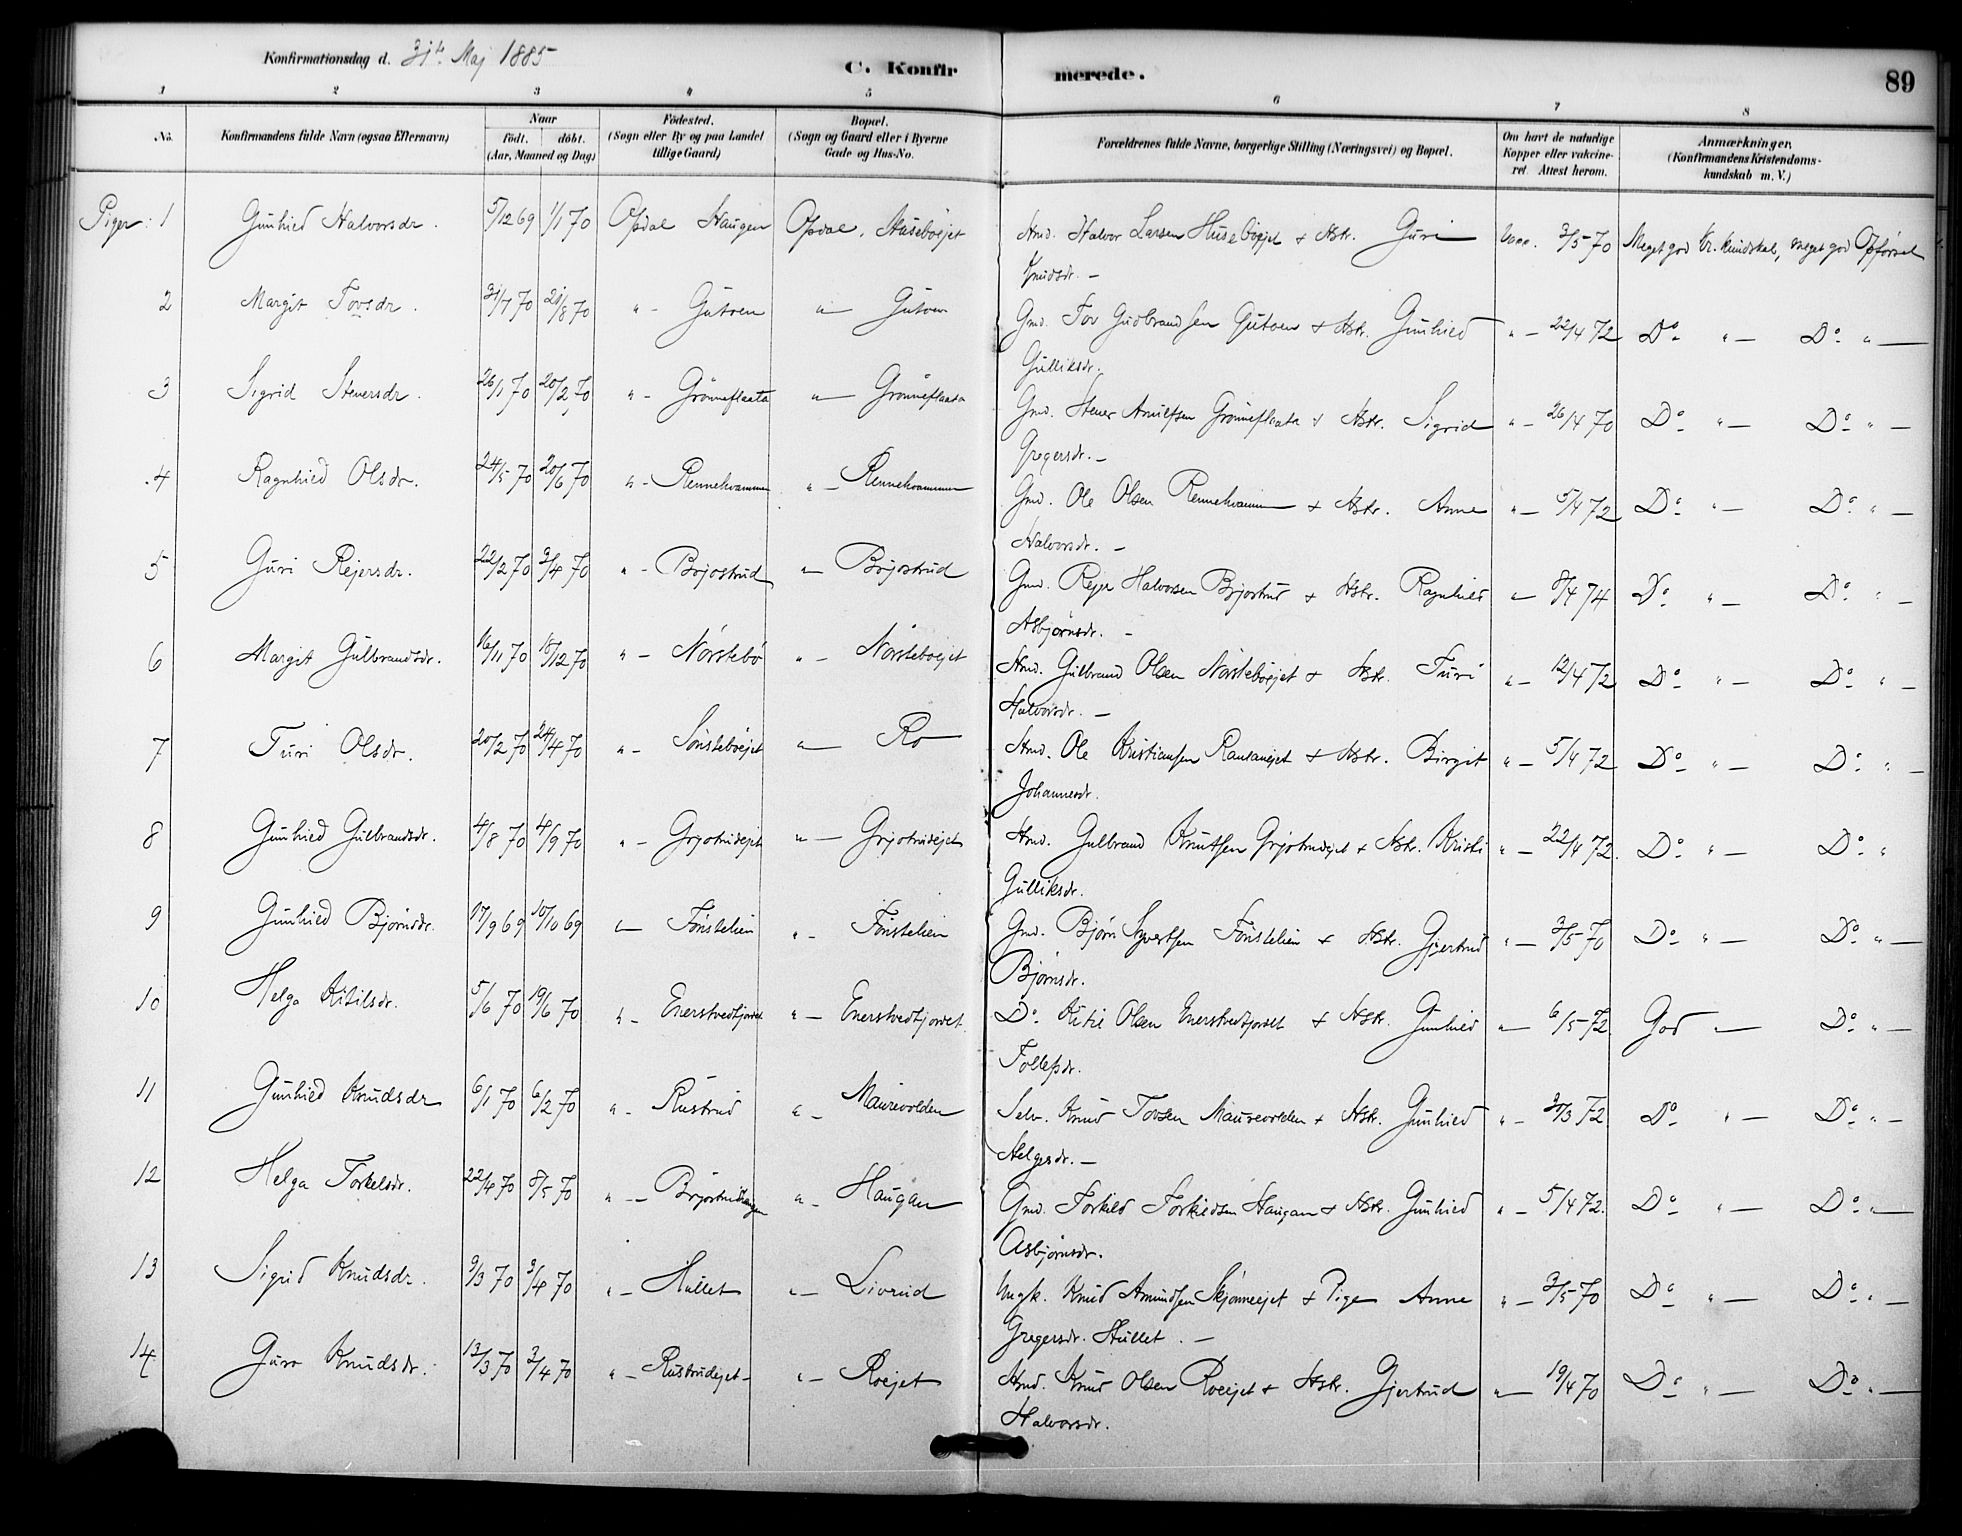 Konfirmationsdag d. 31te Maj 1885 C. Konfirmerede. 89
1 2 3 4 5 6 7 8
No. Konfirmandens fulde Navn (ogsaa Efternavn) Naar født. døbt. (Aar, Maaned og Dag) Fødested. (Sogn eller By og paa Landet tillige Gaard) Bopæl. (Sogn og Gaard eller i Byerne Gade og Hus-No. Forældrenes fulde Navne, borgerlige Stilling (Næringsvei) og Bopæl. Om havt de naturlige Kopper eller vakcineret. Attest herom. Anmærkninger. (Konfirmandens Kristendomskundskab m. V.)
Piger: 1 Gunhild Halvorsdr. 5/12 69 1/1 70 Opdal Haugen Opdal, Huseböejet Hmd. Halvor Larsen Huseböejet + Hstr. Guri Vacc. 3/5 70 Meget god Kr. kundskab, meget god Opförsel
Knudsdr. —
2 Margit Tovsdr. 31/7 70 21/8 70 " - Gutoen " — Gutoen Gmd. Tov Gudbrandsen Gutoen + Hstr. Gunhild " — 22/4 72 Do " — Do " —
Gulliksdr.
3 Sigrid Stenersdr. 26/1 70 20/2 70 " - Grönneflaata " — Grönneflaata Gmd. Stener Arnulfsen Grönneflaata + Hstr. Sigrid " — 26/4 70 Do " — Do " —
Gregersdr. —
4 Ragnhild Olsdr. 24/5 70 20/6 70 " - Rennehvammen " — Rennehvammen Gmd. Ole Olsen Rennehvammen + Hstr. Anne " — 5/4 72 Do " — Do " —
Halvorsdr. —
5 Guri Rejersdr. 22/2 70 3/4 70 " - Brjostrud " — Brjostrud Gmd. Rejer Halvorsen Brjostrud + Hstr. Ragnhild " — 8/4 74 Do " — Do " —
Asbjörnsdr. —
6 Margit Gulbrandsdr. 16/11 70 18/12 70 " - Nörstebö " — Nörsteböejet Hmd. Gulbrand Olsen Nörsteböejet + Hstr. Turi " — 12/4 72 Do " — Do " —
Halvorsdr. —
7 Turi Olsdr. 20/2 70 24/4 70 " - Sönsteböejet " — Ro Hmd. Ole Kristiansen + Hstr. Birgit " — 5/4 72 Do " — Do " —
Johannesdr.
8 Gunhild Gulbrandsdr. 4/8 70 4/9 70 " - Grjotrudejet " — Grjotrudejet Hmd. Gulbrand Knutsen Grjotrudejet + Hstr. Kristi " — 22/4 72. Do " — Do "
Gulliksdr.
9 Gunhild Bjørnsdr. 17/9 69 10/10 69 " — Fönstelien " - Fönstelien Gmd. Bjørn Syvertsen Fönstelien + Hstr. Gjertrud " — 3/5 70 Do " — Do " —
Bjørnsdr.
10 Helga Kitilsdr. 5/6 70 19/6 70 " - Enerstvedtjordet " — Enerstvedtjordet Do Kitil Olsen Enerstvedtjordet + Hstr. Gunhild " — 6/5 72 God " — Do " —
Tollefsdr.
11 Gunhild Knudsdr 6/1 70 6/2 70 " - Rustrud " - Maurevolden Selv. Knud Tovsen Maurevolden + Hstr. Gunhild " — 20/3 72 Do " — Do " —
Helgesdr. —
12 Helga Torkelsdr. 22/4 70 8/5 70 " - Brjostrudhaugen " - Haugan Gmd. Torkild Torkildsen Haugan + Hstr. Gunhild " — 5/4 72. Do " — Do " —
Asbjørnsdr.
13 Sigrid Knudsdr. 9/3 70 3/4 70 " - Hullet " - Livrud Ungk. Knud Amundsen Skjønneejet + Pige Anne " — 3/5 70 Do " — Do " —
Gregersdr. Hullet. —
14 Guro Knudsdr. 13/3 70 3/4 70 " - Rustrudejet - " - Roejet Hmd. Knud Olsen Roejet + Hstr. Gjertrud " — 19/4 70 Do " — Do " —
Halvorsdr.